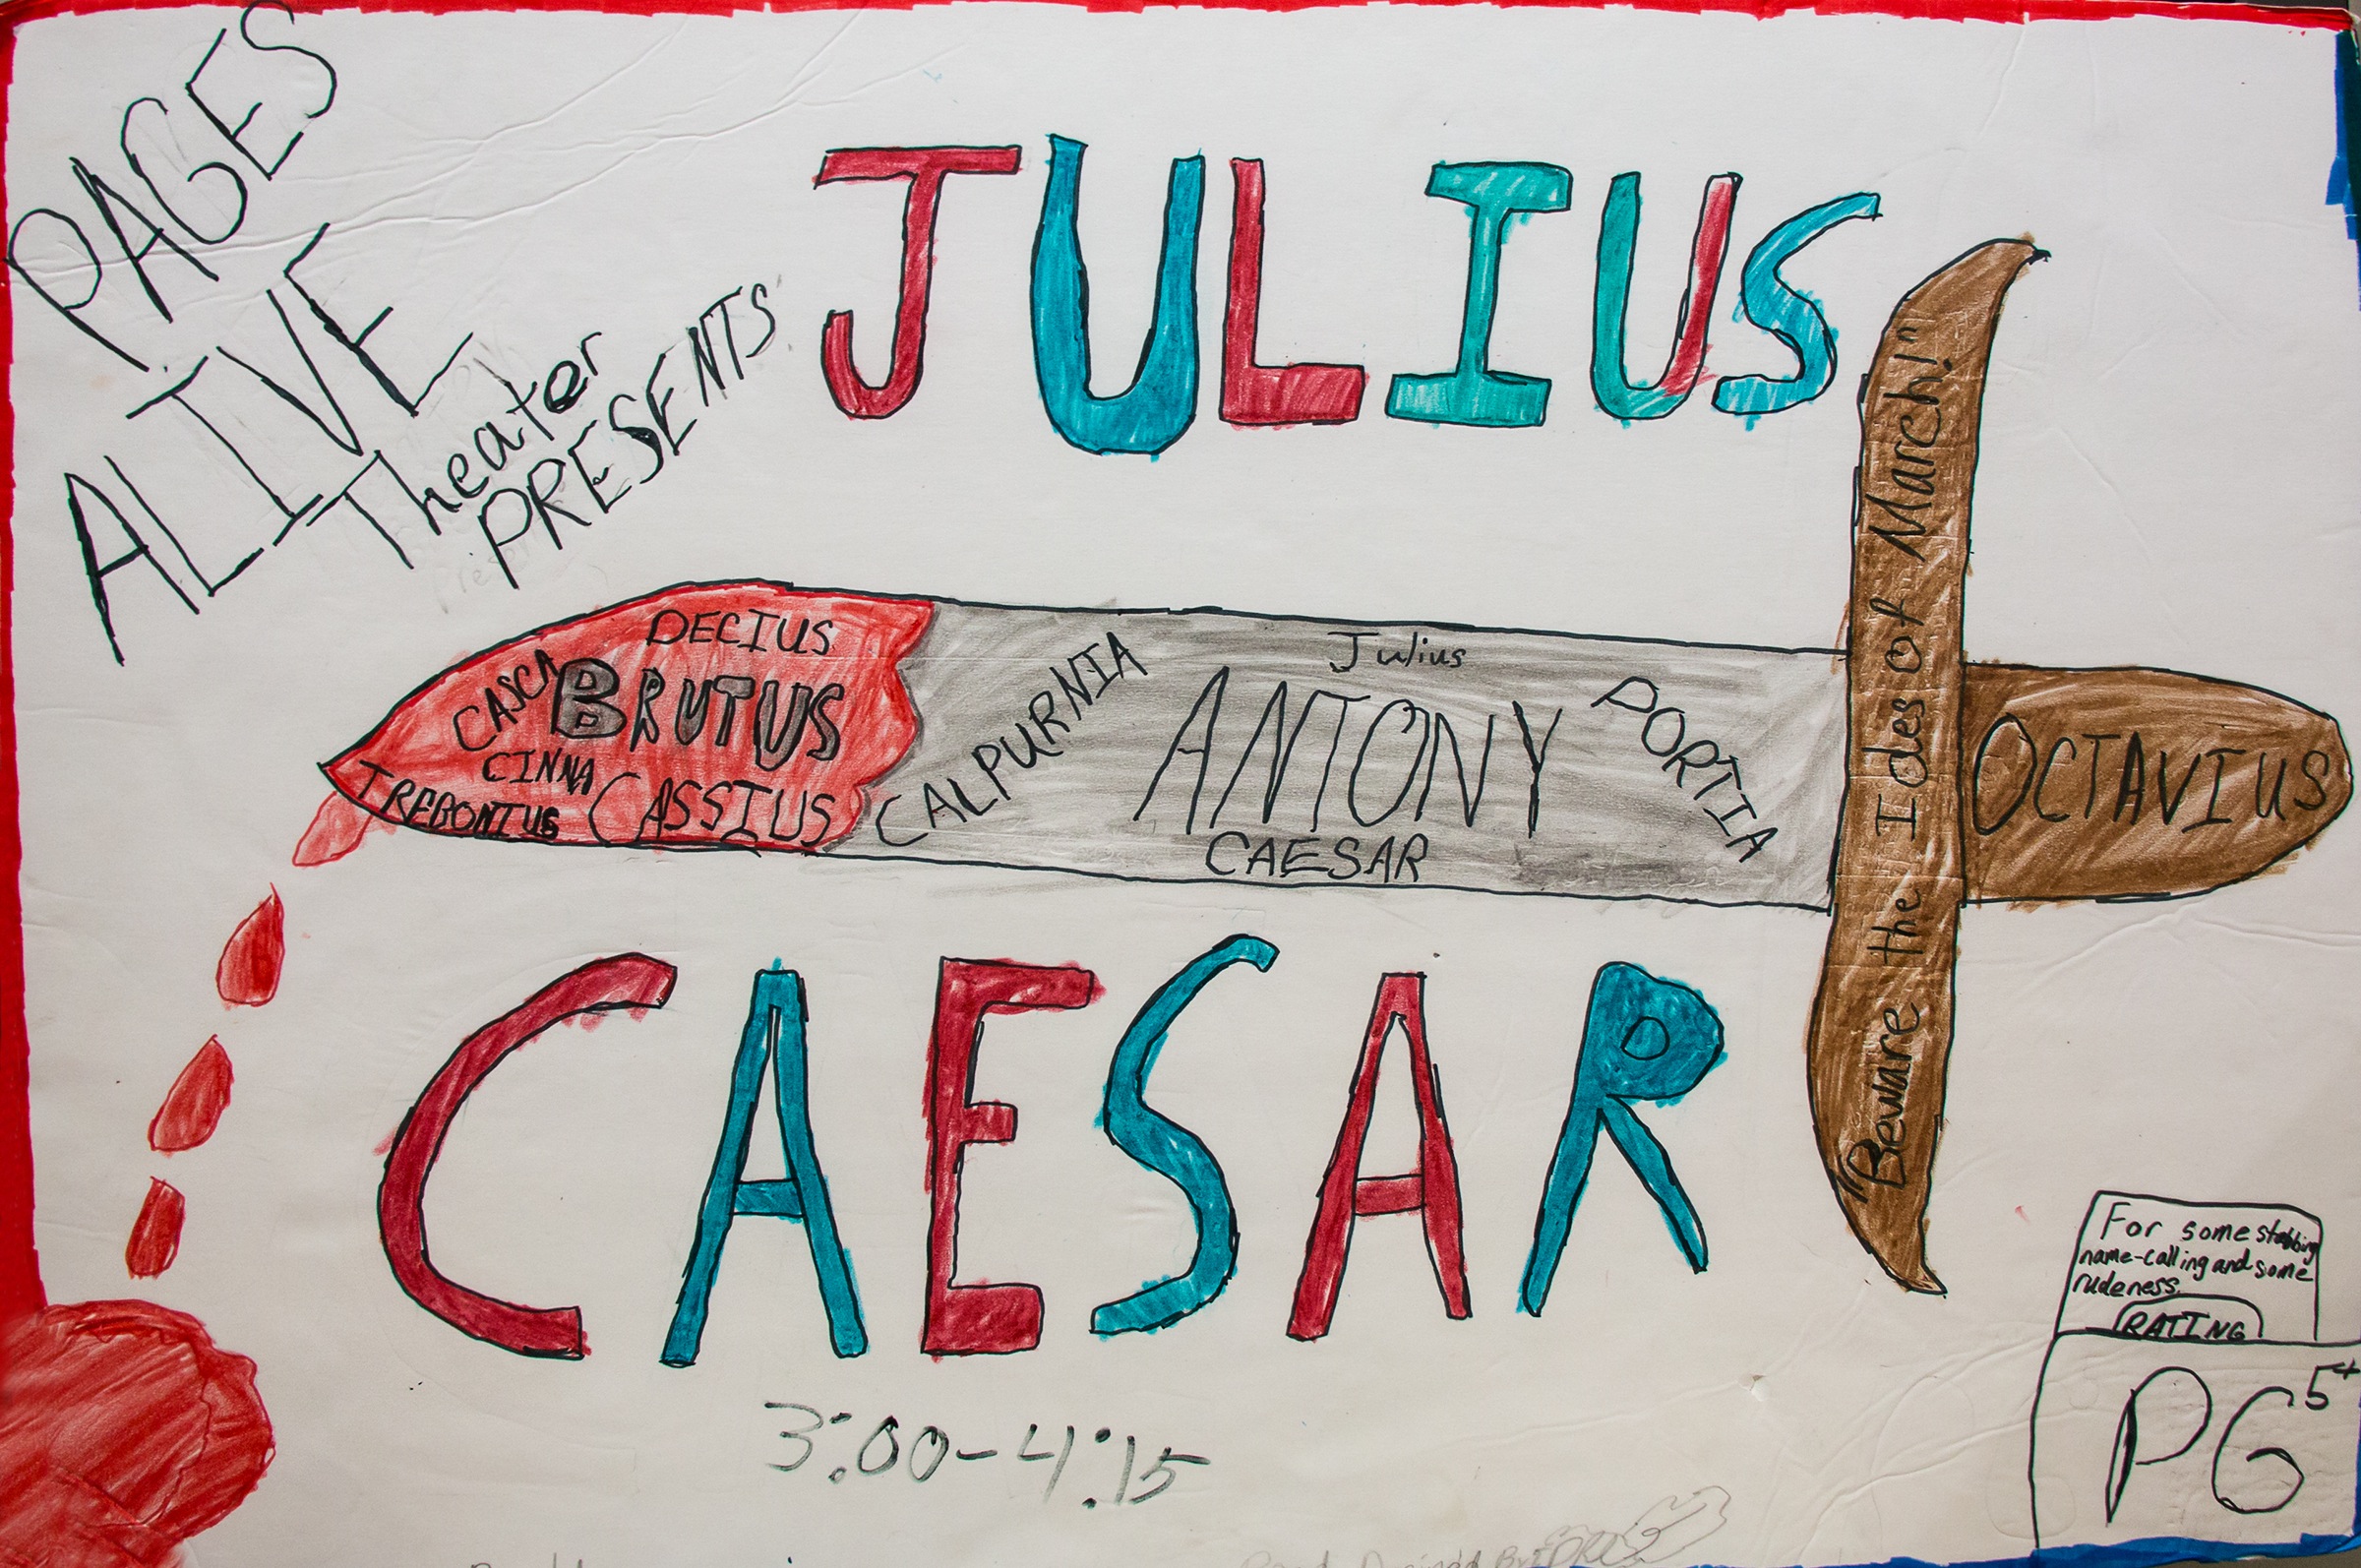 PAGES
ALIVE
Theater
PRESENTS
JULIUS
DECIUS
CASCA
BRUTUS
CINNA
TREBONIUS
CASSIUS
CALPURNIA
Julius
ANTONY
CAESAR
PORTIA
"Beware the Ides of March!"
OCTAVIUS
CAESAR
3:00-4:15
For some stabbing
name-calling and some
rudeness.
RATING
PG5+